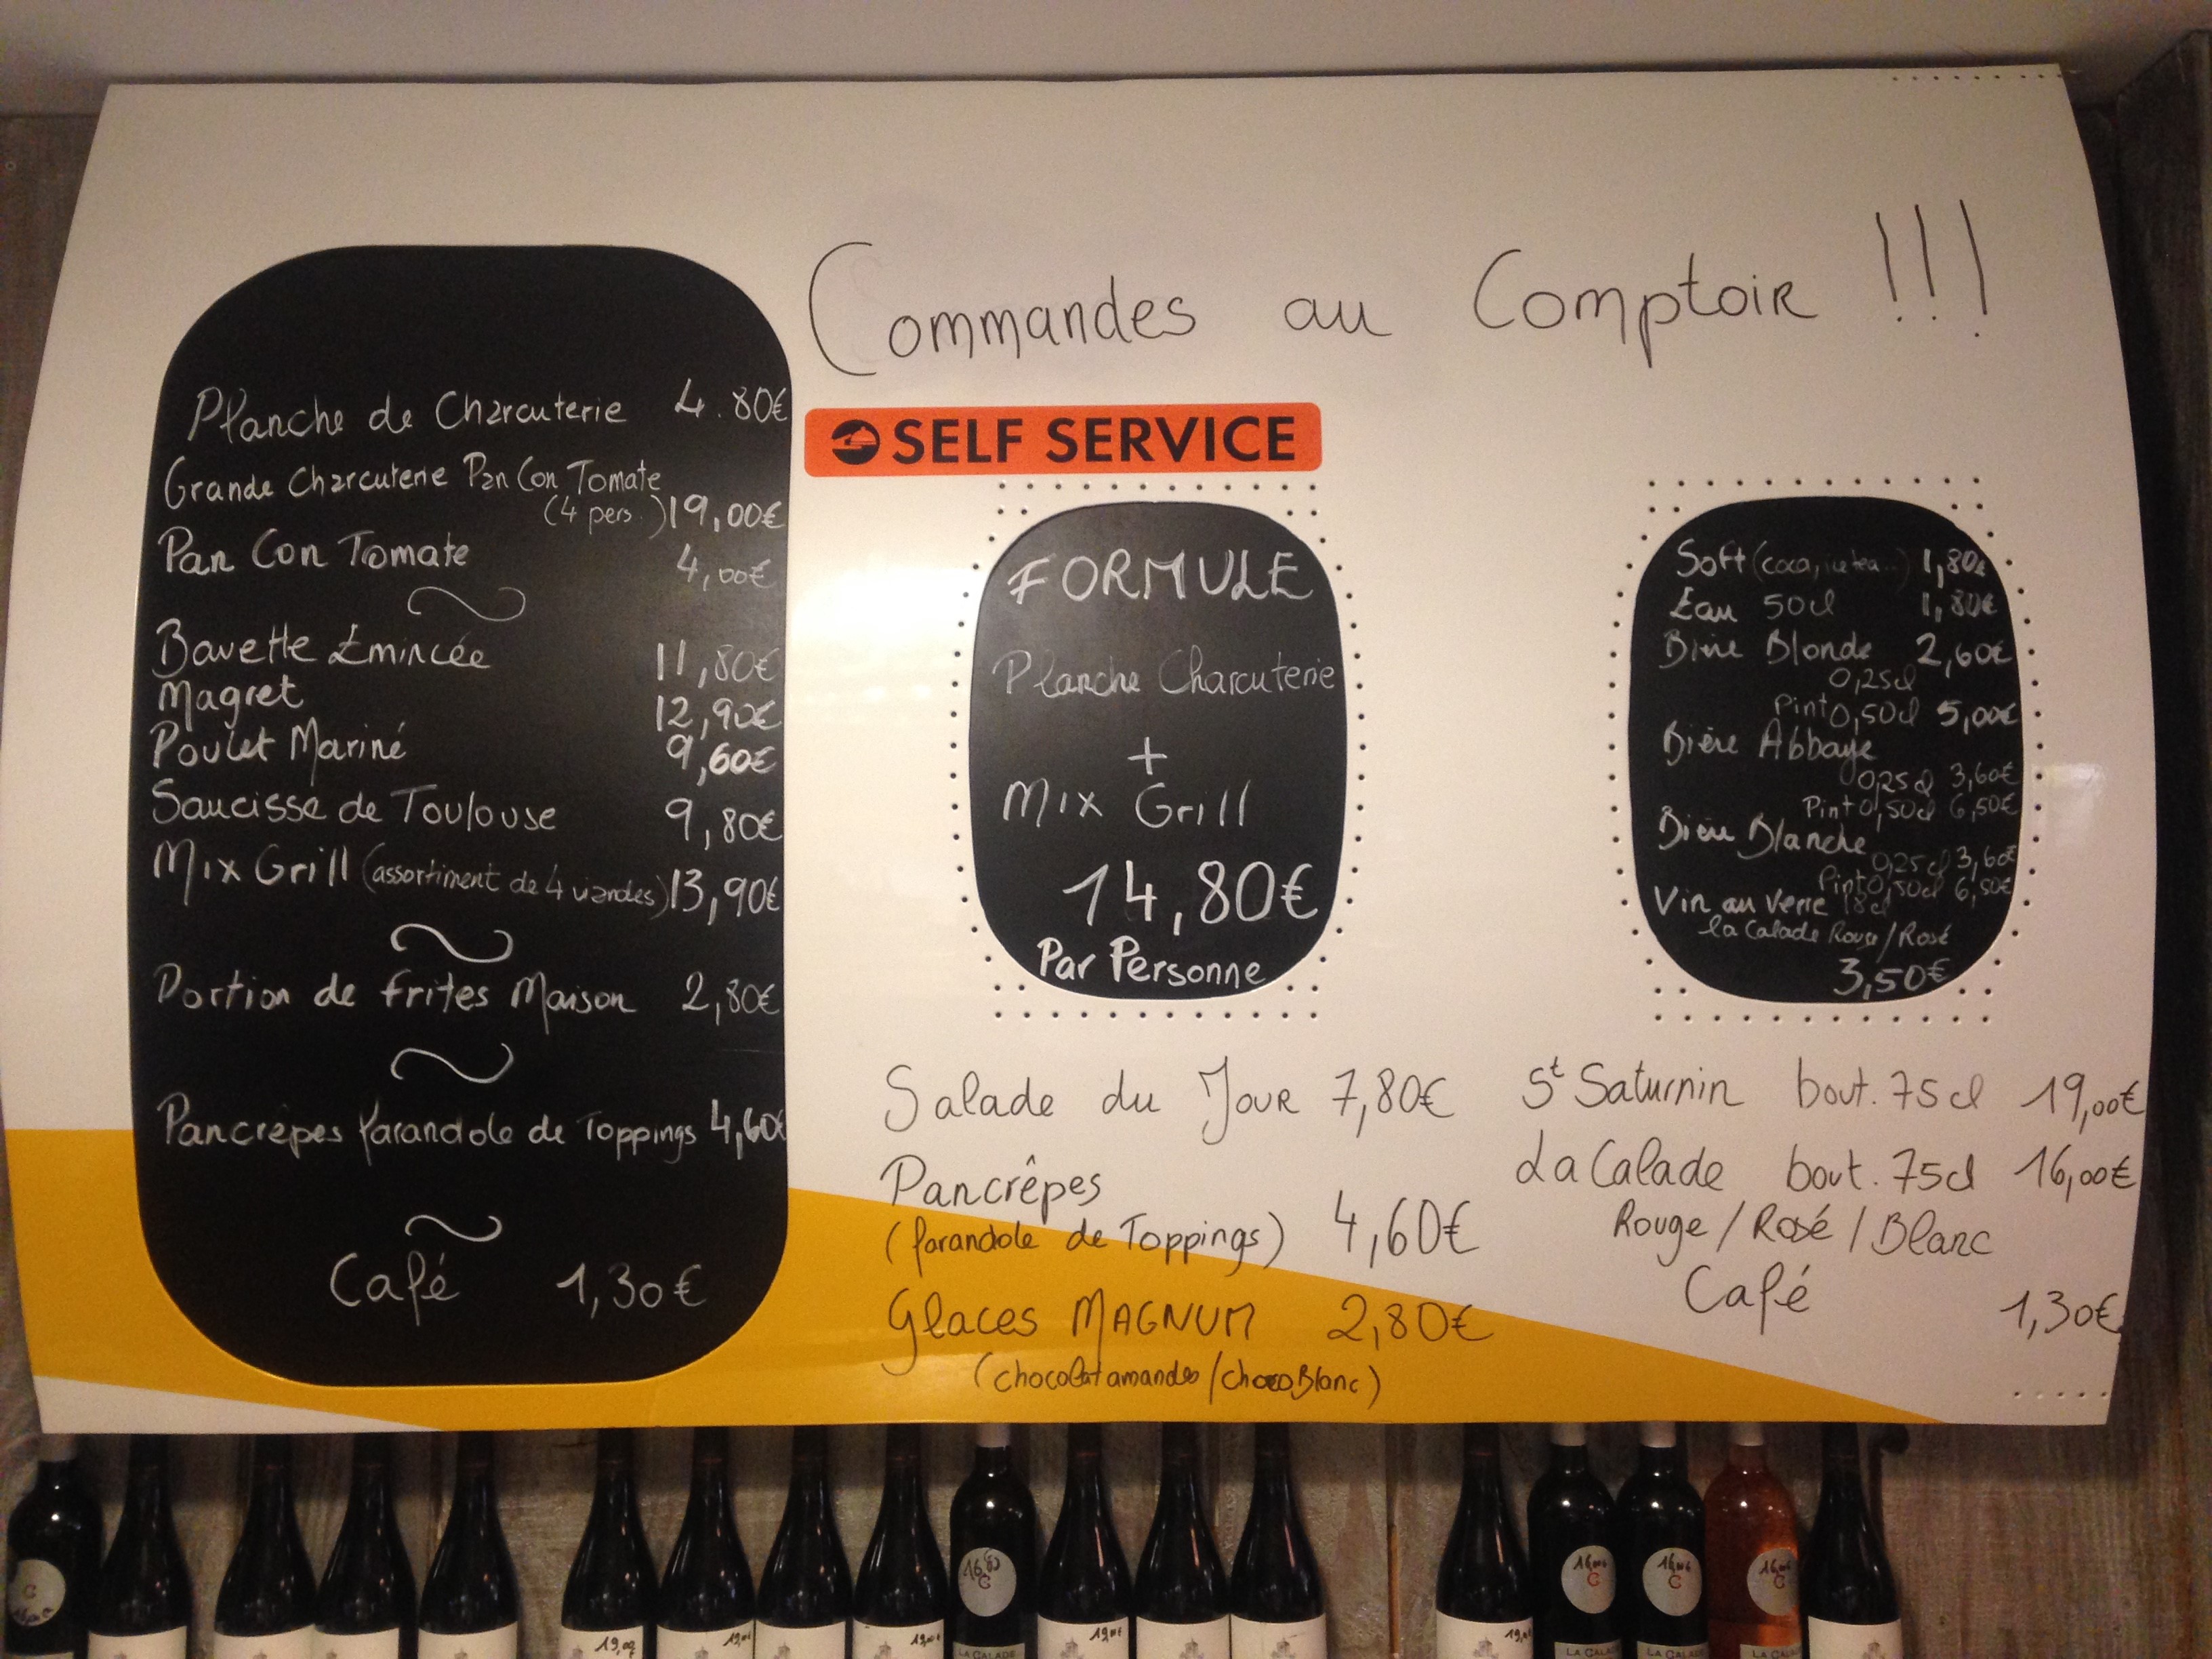 Commandes au Comptoir !!!
SELF SERVICE
Planche de Charcuterie 4.80€
Grande Charcuterie Pan Con Tomate
(4 pers.) 19,00€
Pan Con Tomate 4,00€
Bavette Émincée 11,80€
Magret 12,90€
Poulet Mariné 9,60€
Saucisse de Toulouse 9,80€
Mix Grill (assortiment de 4 viandes) 13,90€
Portion de frites Maison 2,80€
Pancrêpes farandole de Toppings 4,60€
Café 1,30€
FORMULE
Planche Charcuterie
+
Mix Grill
14,80€
Par Personne
Soft (coca, ice tea..) 1,80€
Eau 50cl 1,80€
Bière Blonde 2,60€
0,25cl
Pint 0,50cl 5,00€
Bière Abbaye
0,25cl 3,60€
Pint 0,50cl 6,50€
Bière Blanche
0,25cl 3,60€
Pint 0,50cl 6,50€
Vin au verre 18cl
la Calade Rouge/Rosé
3,50€
Salade du Jour 7,80€
Pancrêpes
(farandole de Toppings) 4,60€
Glaces MAGNUM 2,80€
(chocolat amandes/choco Blanc)
St Saturnin bout. 75cl 19,00€
La Calade bout. 75cl 16,00€
Rouge / Rosé / Blanc
Café 1,30€
C
16,00
C
16,00€
C
16,00€
C
16,00€
C
19,00
19,00€
19,00€
19,00€
LA CALADE
LA CALADE
LA CALADE